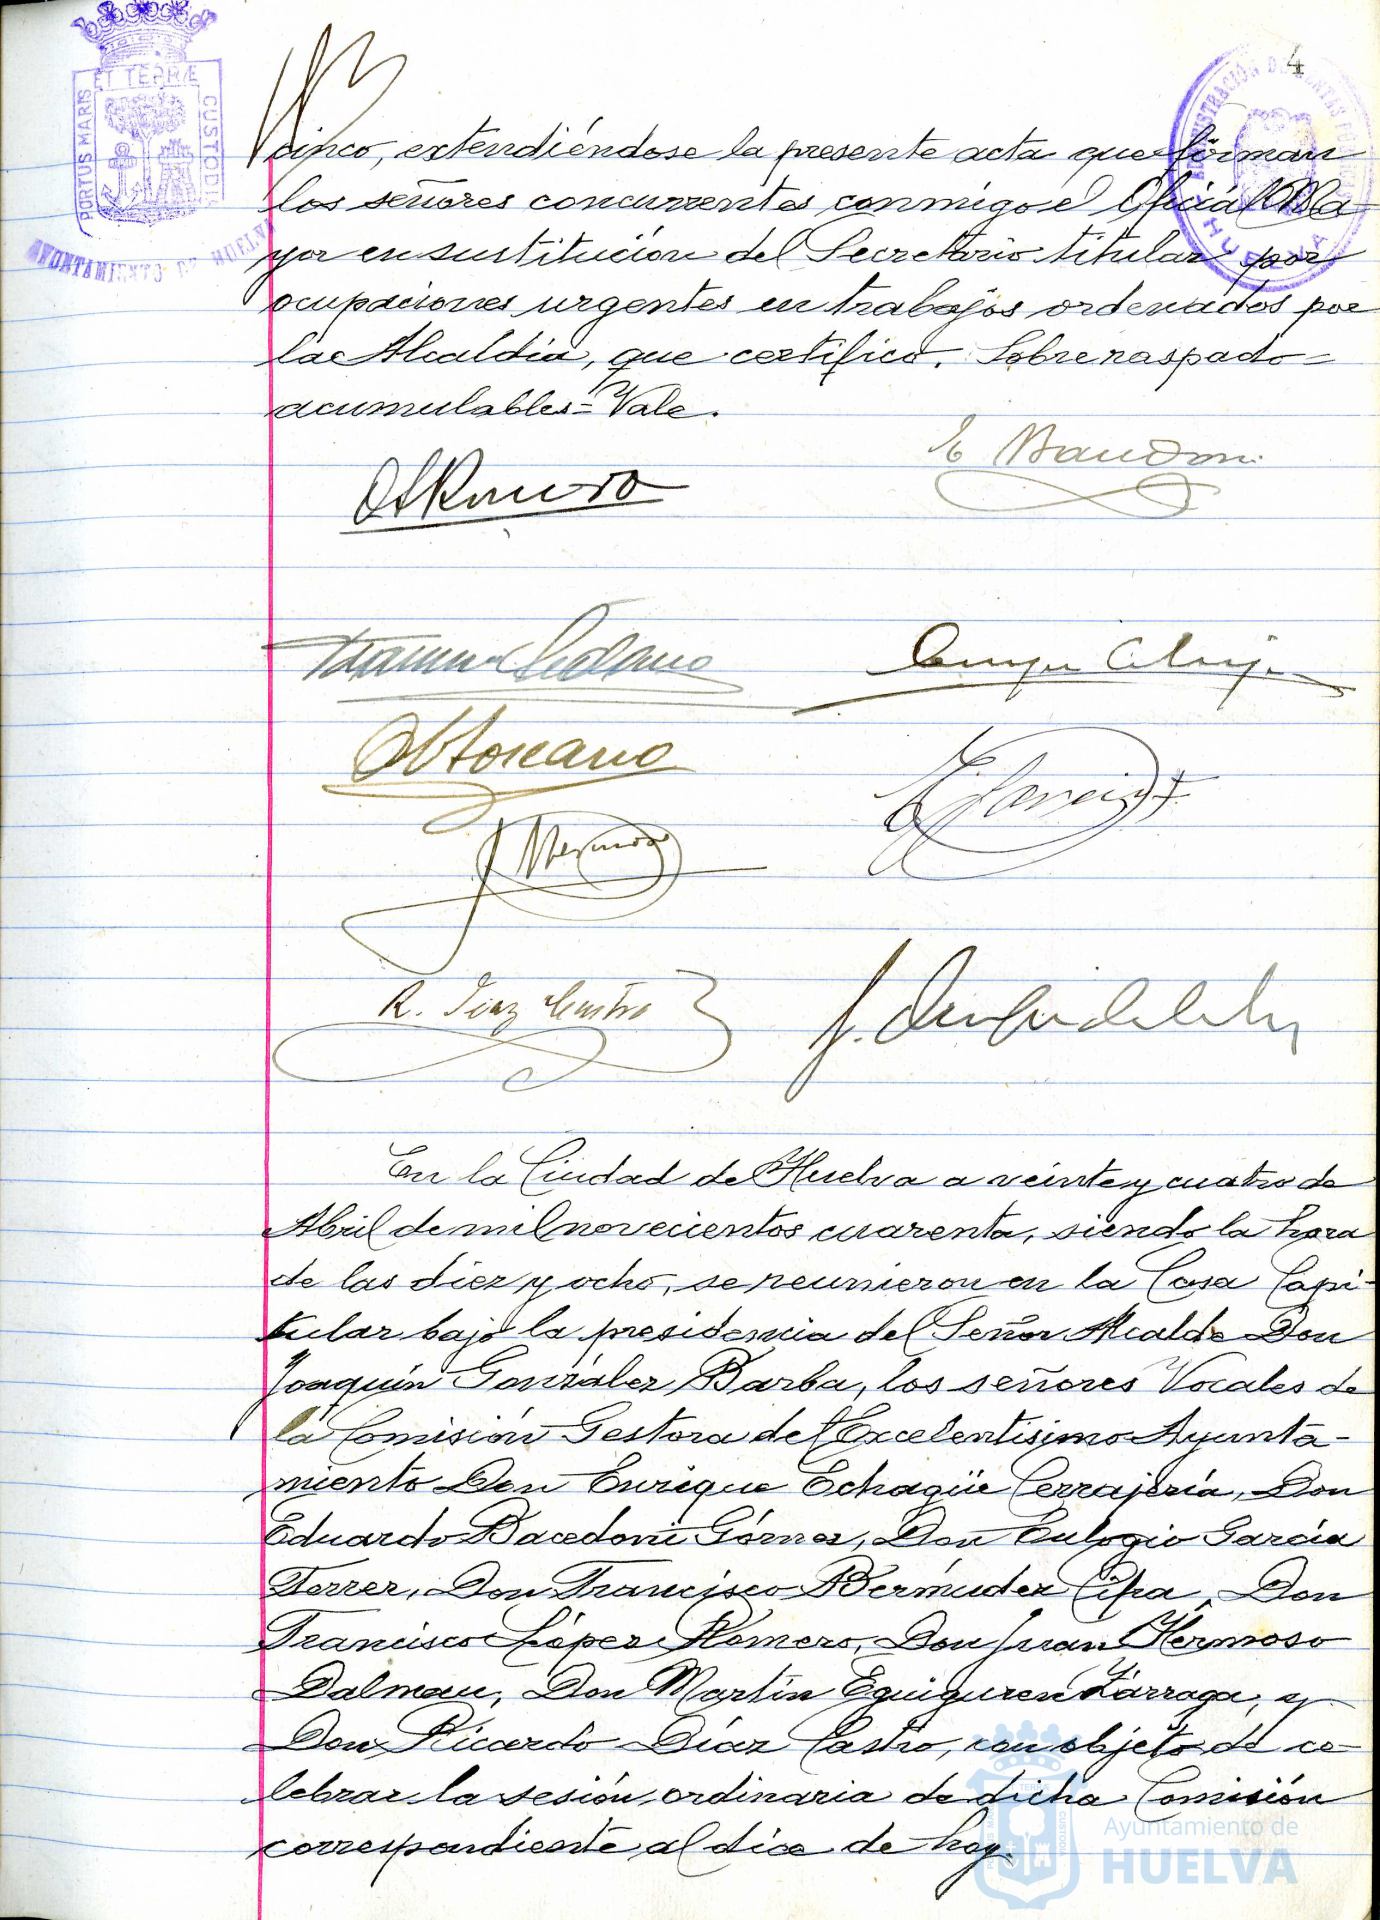 4
PORTUS MARIS ET TERRÆ CUSTODIA
AYUNTAMIENTO DE HUELVA
ADMINISTRACIÓN DE RENTAS PÚBLICAS
HUELVA
cinco, extendiéndose la presente acta que firman
los señores concurrentes conmigo el Oficial Ma-
yor en sustitución del Secretario titular por
ocupaciones urgentes en trabajos ordenados por
la Alcaldía, que certifico. Sobre raspado=
acumulables=Vale.
R. Diaz Castro
En la Ciudad de Huelva a veinte y cuatro de
Abril de mil novecientos cuarenta, siendo la hora
de las diez y ocho, se reunieron en la Casa Capi-
tular bajo la presidencia del Señor Alcalde Don
Joaquín González Barba, los señores Vocales de
la Comisión Gestora del Excelentísimo Ayunta-
miento Don Enrique Echagüe Cerrajería, Don
Eduardo Bacedoni Gómez, Don Eulogio García
Ferrer, Don Francisco Bermúdez Cifra, Don
Francisco López Romero, Don Juan Hermoso
Dalmau, Don Martín Eguiguren Lárraga, y
Don Ricardo Díaz Castro, con objeto de ce-
lebrar la sesión ordinaria de dicha Comisión
correspondiente al día de hoy.
Ayuntamiento de
HUELVA